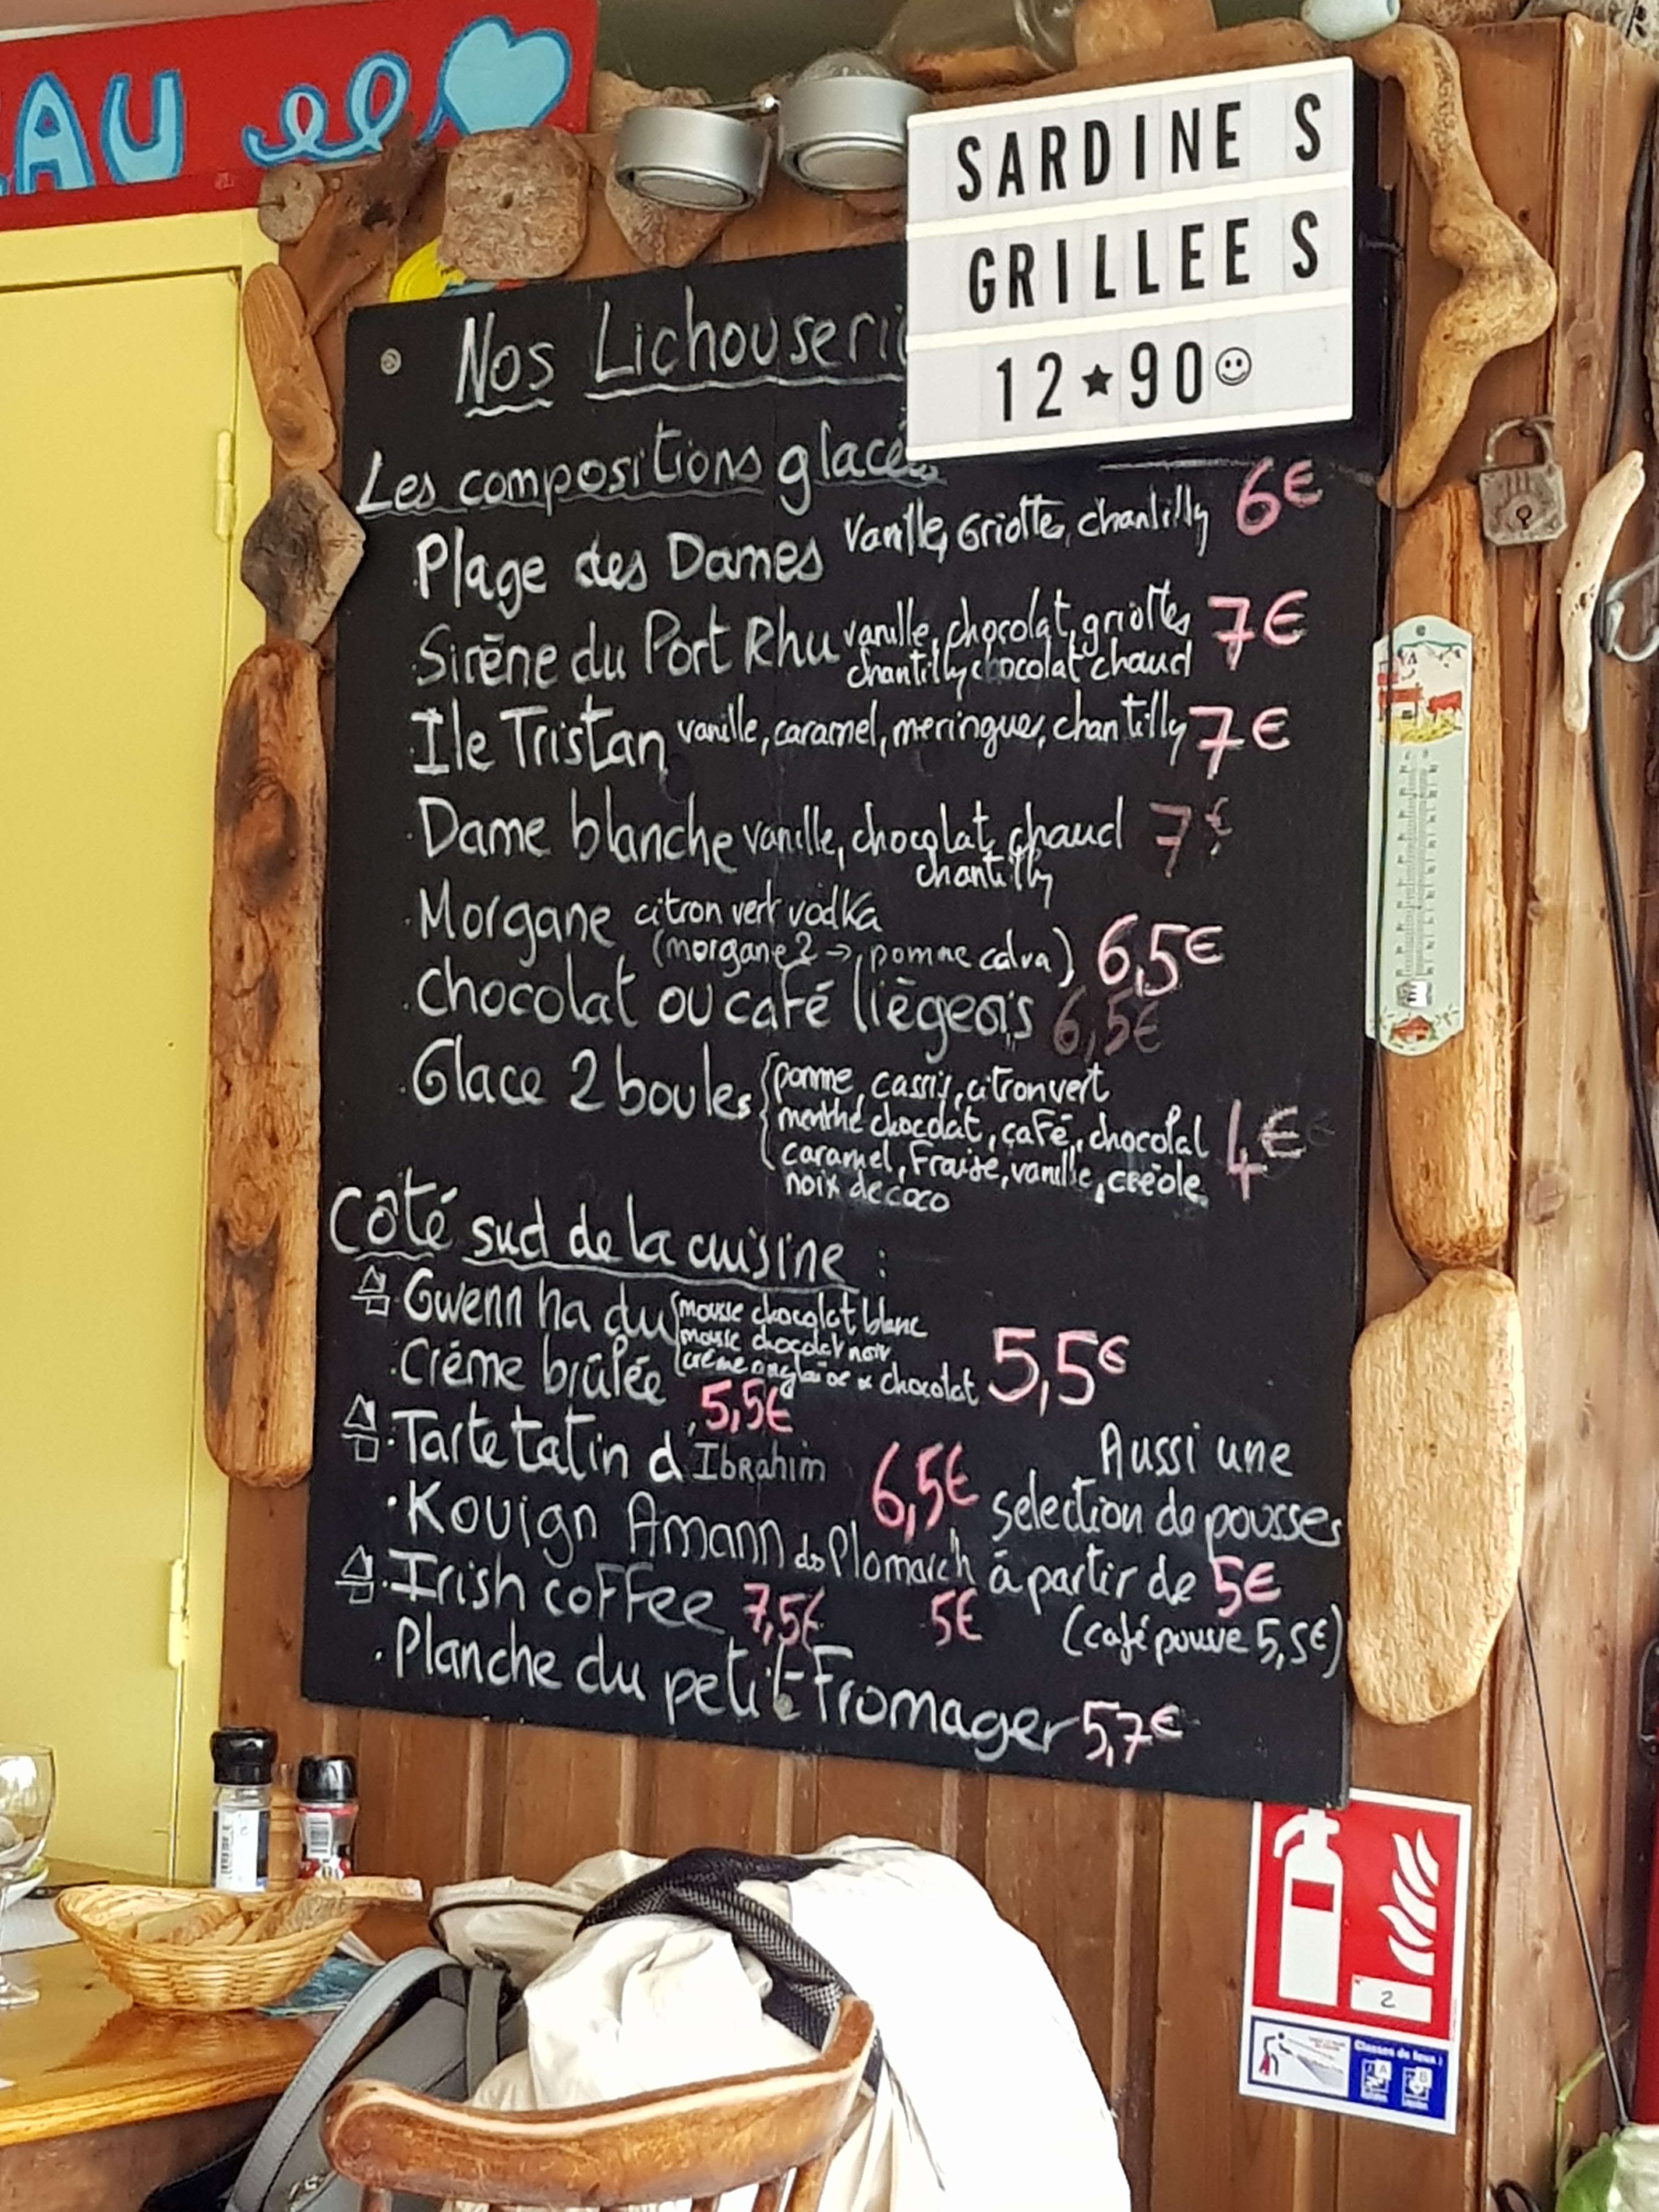 AU
SARDINES
GRILLEES
12★90☺
Nos Lichouseri
Les compositions glacées
Plage des Dames Vanille, Griotte, chantilly 6€
Sirène du Port Rhu vanille, chocolat, griottes 7€
chantilly chocolat chaud
Ile Tristan vanille, caramel, meringues, chantilly 7€
Dame blanche vanille, chocolat chaud 7€
chantilly
Morgane citron vert vodka
(morgane 2 → pomme calva) 6,5€
chocolat ou café liègeois 6,5€
Glace 2 boules pomme, cassis, citron vert
menthe chocolat, café, chocolat 4€
caramel, Fraise, vanille, créole
noix de coco
Côté sud de la cuisine :
Gwenn ha du mousse chocolat blanc
mousse chocolat noir
crème anglaise chocolat 5,5€
Crème brûlée 5,5€
Tarte tatin d'Ibrahim 6,5€
Kouign Amann du Plomarch 5€
Irish coffee 7,5€
Planche du petit Fromager 5,7€
Aussi une
selection de pousses
à partir de 5€
(café pousse 5,5€)
2
Classes de feux :
A
B